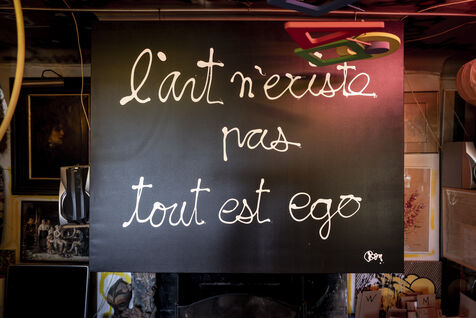 l'art n'existe
pas
tout est ego
Ben